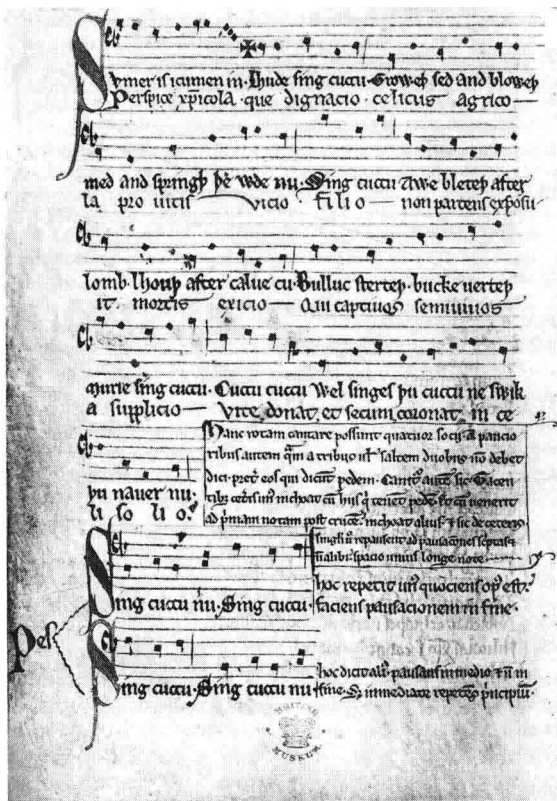 Svmer is icumen in · Lhude sing cuccu · Groweþ sed and bloweþ
Perspice xp̄icola · que dignacio · celicus agrico—
med and springþ þe wde nu · Sing cuccu Awe bleteþ after
la pro uitis vicio filio — non parcens exposu
lomb · lhouþ after calue cu · Bulluc sterteþ · bucke uerteþ
it · mortis exicio — Qui captiuos semiuiuos
murie sing cuccu · Cuccu cuccu Wel singes þu cuccu ne swik
a supplicio — Vite donat, et secum coronat, in ce
þu nauer nu ·
li so li o ·
Hanc rotam cantare possunt quatuor socii · A paucio
ribus autem q̄m a tribus ul̓ saltem duobus nō debet
dici · pret̓ eos qui dicūt pedem · Canit̓ autē sic · Tacen
tibȝ cet̓is unus inchoat cū hiis q̓ tenēt pedē · Et cū uenerit
ad p̓mam notam post crucē · inchoat alius · ⁊ sic de ceteris
singli ū repausent ad pausacōnes scriptas ⁊
n̄ alibi · spacio unius longe note ·
Pes
Sing cuccu nu · Sing cuccu ·
hoc repetit un̓ quociens opꝰ est ·
faciens pausacionem in fine ·
Sing cuccu · Sing cuccu nu
hoc dicit aliꝰ · pausans in medio ⁊ n̄ in
fine · S; immediate repetēs p̓ncipiū ·
BRITISH MUSEUM